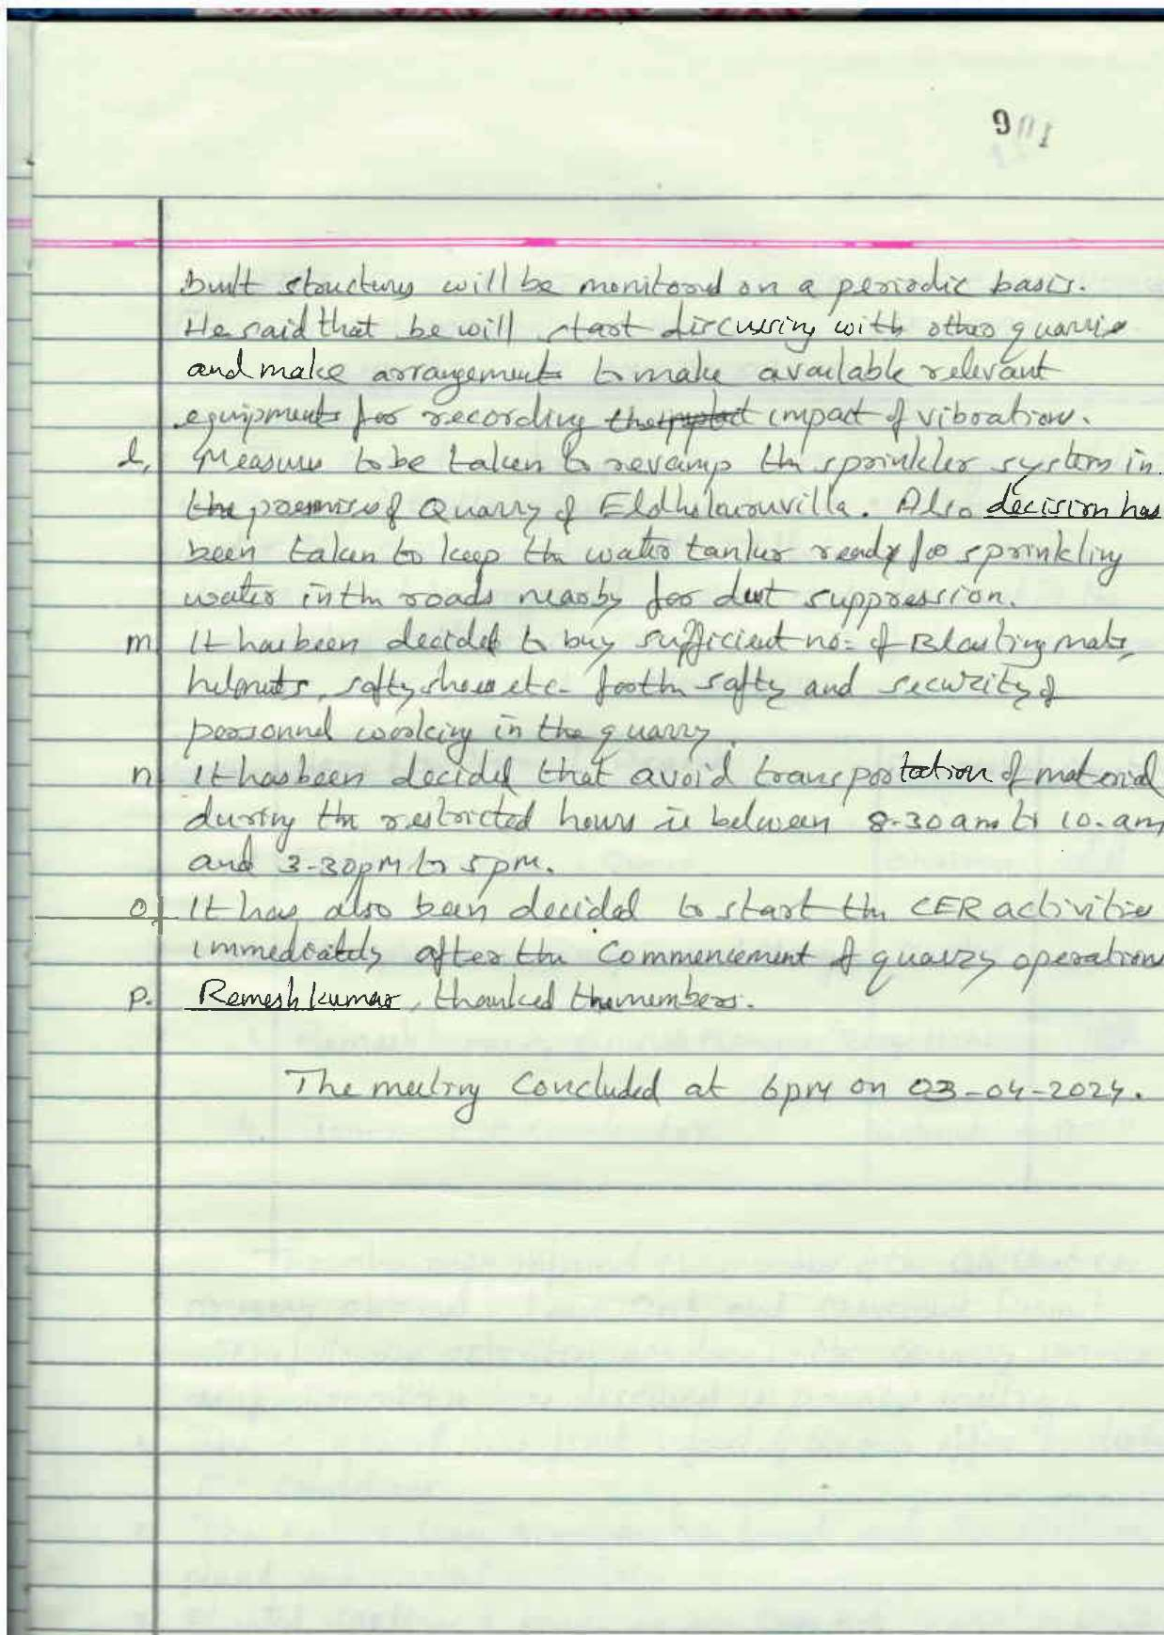 9
built structures will be monitored on a periodic basis.
He said that he will start discussing with other quarries
and make arrangements to make available relevant
equipments for recording the impact of vibration.
l, Measures to be taken to revamp the sprinkler system in
the premises of Quarry of . Also decision has
been taken to keep the water tanker ready for sprinkling
water in the roads nearby for dust suppression.
m It has been decided to buy sufficient no: of Blasting mats,
helmets, safty shoes etc- for the safty and security of
personnel working in the quarry.
n It has been decided that avoid transportation of material
during the restricted hours ie between 8-30 am to 10. am
and 3-30pm to 5pm.
o, It has also been decided to start the CER activities
immediately after the Commencement of quarry operation
p. Remesh kumar, thanked the members.
The meeting Concluded at 6pm on 03-04-2024.